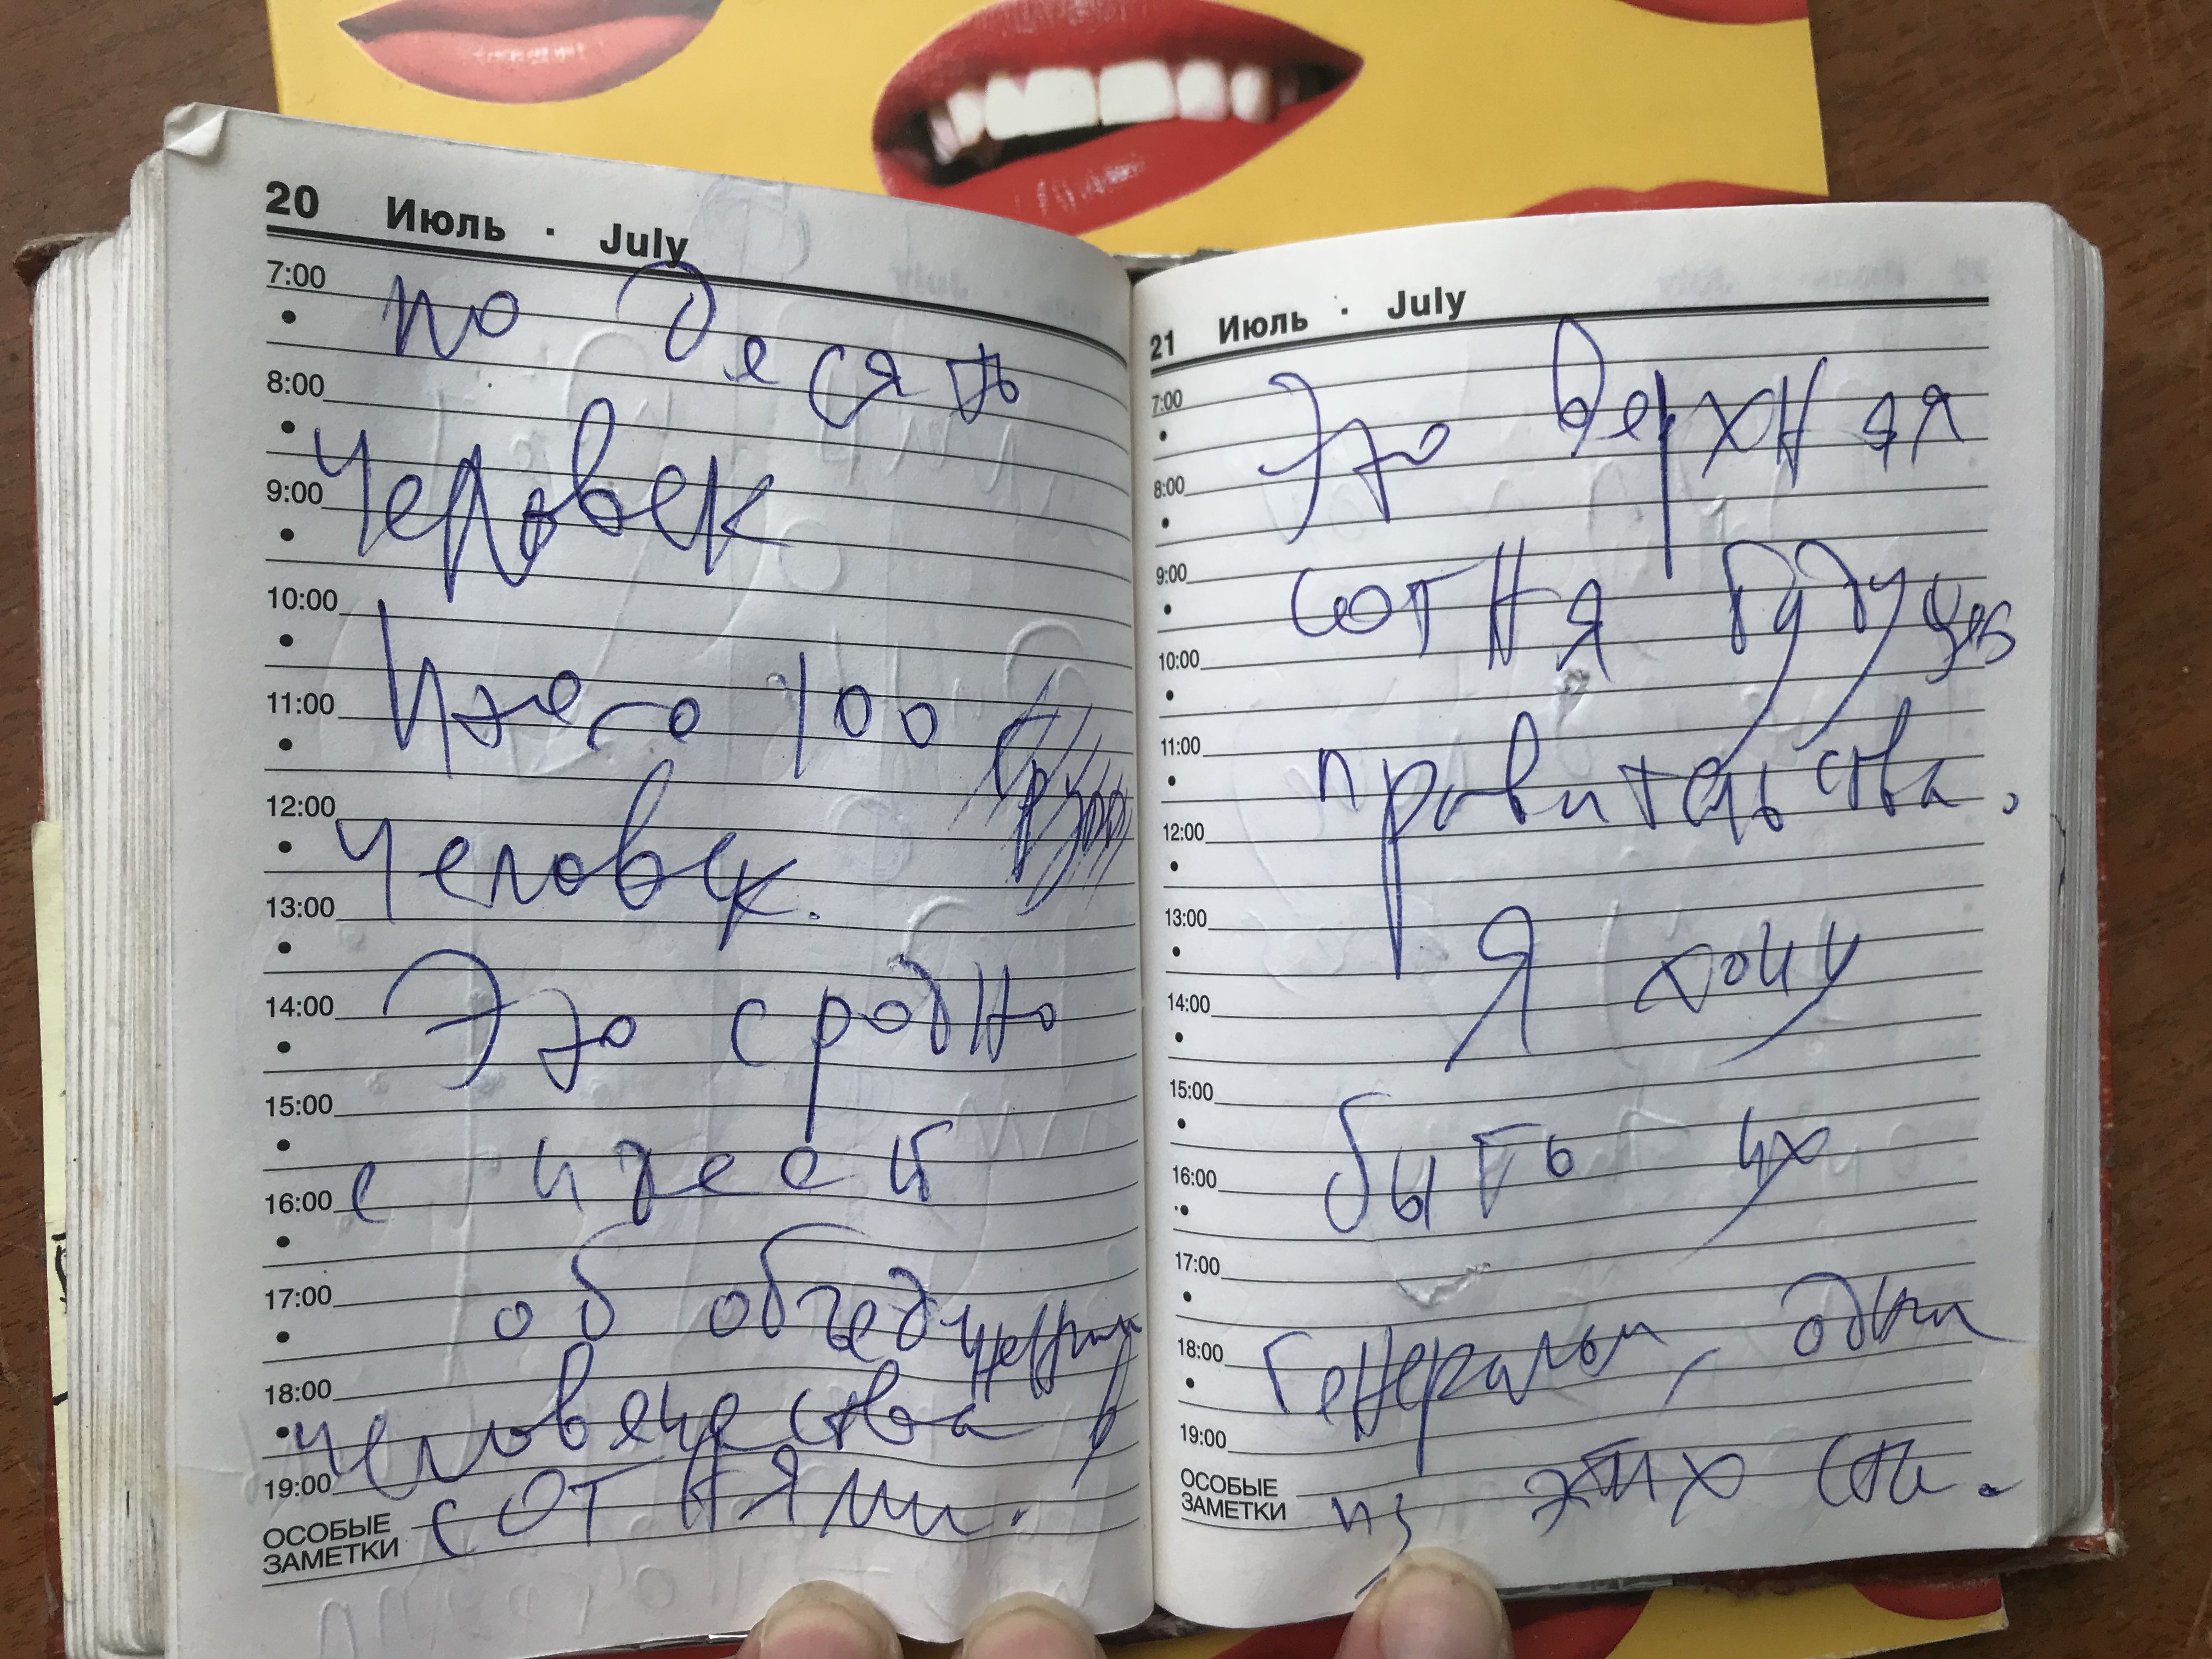 20 Июль · July
7:00
8:00
9:00
10:00
11:00
12:00
13:00
14:00
15:00
16:00
17:00
18:00
19:00
ОСОБЫЕ
ЗАМЕТКИ
по десять
человек
Итого 100
человек.
Это сродно
с идеей
об объедурению
человечества
сотнями.
21 Июль · July
7:00
8:00
9:00
10:00
11:00
12:00
13:00
14:00
15:00
16:00
17:00
18:00
19:00
ОСОБЫЕ
ЗАМЕТКИ
Это верхняя
сотня будущ
правительства.
Я хочу
быть их
Генералом,
из этих ста.